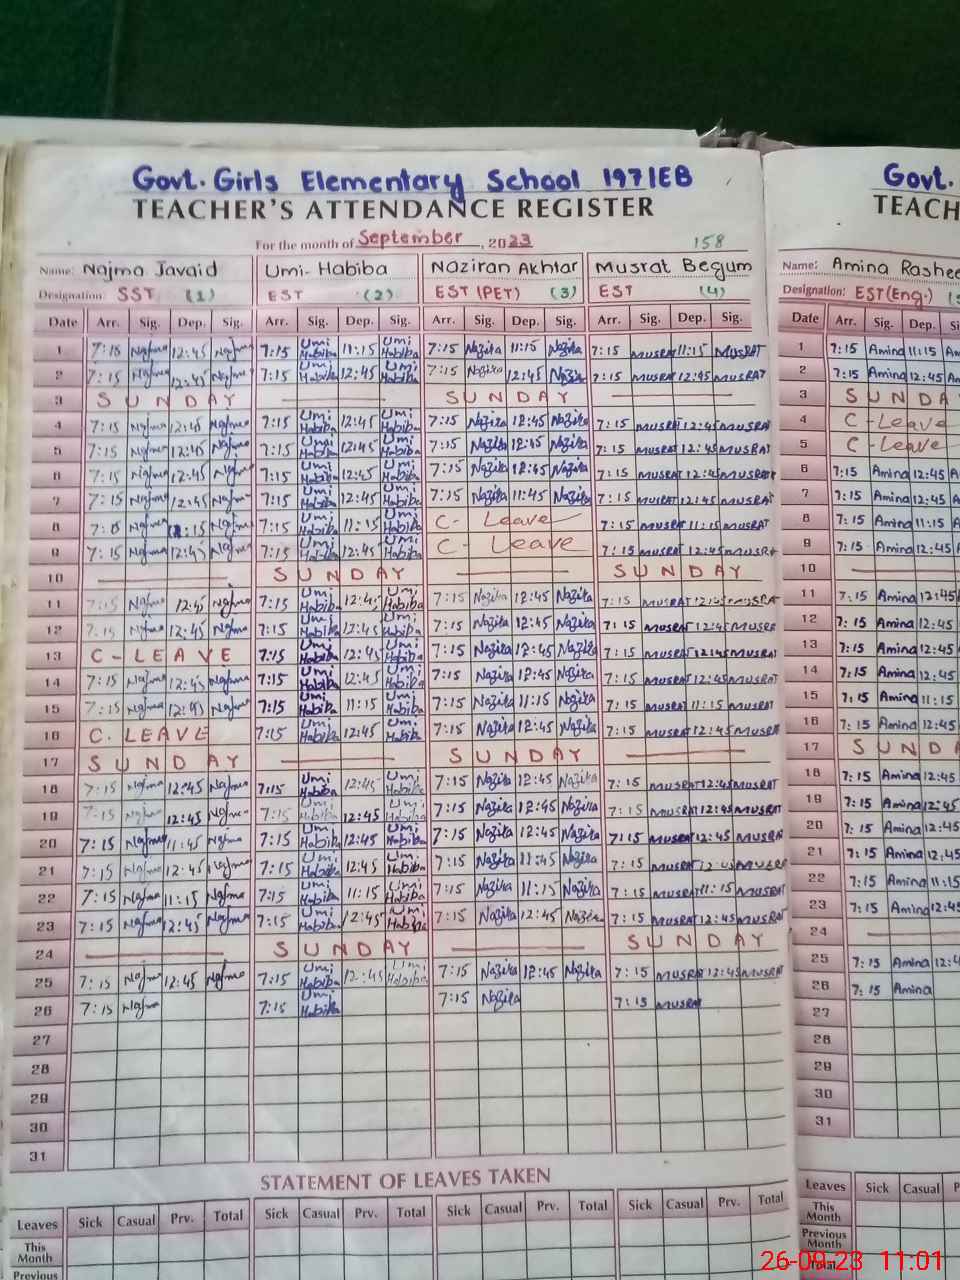 Govt. Girls Elementary School 197/EB
TEACHER'S ATTENDANCE REGISTER
For the month of September, 2023
158
Name: Najma Javaid Umi-Habiba Naziran Akhtar Musrat Begum
Designation: SST (1) EST (2) EST (PET) (3) EST (4)
Date Arr. Sig. Dep. Sig. Arr. Sig. Dep. Sig. Arr. Sig. Dep. Sig. Arr. Sig. Dep. Sig.
1 7:15 Najma 12:45 Najma 7:15 Umi Habiba 11:15 Umi Habiba 7:15 Nazira 11:15 Nazira 7:15 MUSRAT 11:15 MUSRAT
2 7:15 Najma 12:45 Najma 7:15 Umi Habiba 12:45 Umi Habiba 7:15 Nazira 12:45 Nazira 7:15 MUSRAT 12:45 MUSRAT
3 SUNDAY SUNDAY
4 7:15 Najma 12:45 Najma 7:15 Umi Habiba 12:45 Umi Habiba 7:15 Nazira 12:45 Nazira 7:15 MUSRAT 12:45 MUSRAT
5 7:15 Najma 12:45 Najma 7:15 Umi Habiba 12:45 Umi Habiba 7:15 Nazira 12:45 Nazira 7:15 MUSRAT 12:45 MUSRAT
6 7:15 Najma 12:45 Najma 7:15 Umi Habiba 12:45 Umi Habiba 7:15 Nazira 12:45 Nazira 7:15 MUSRAT 12:45 MUSRAT
7 7:15 Najma 12:45 Najma 7:15 Umi Habiba 12:45 Umi Habiba 7:15 Nazira 11:45 Nazira 7:15 MUSRAT 12:45 MUSRAT
8 Najma Najma 7:15 Umi Habiba 11:15 Umi Habiba C- Leave 7:15 MUSRAT 11:15 MUSRAT
9 7:15 Najma 12:45 Najma 7:15 Umi Habiba 12:45 Umi Habiba C- Leave 7:15 MUSRAT 12:45 MUSRAT
10 SUNDAY SUNDAY
11 7:15 Najma 12:45 Najma 7:15 Umi Habiba 12:45 Umi Habiba 7:15 Nazira 12:45 Nazira 7:15 MUSRAT 12:45 MUSRAT
12 7:15 Najma 12:45 Najma 7:15 Umi Habiba 12:45 Umi Habiba 7:15 Nazira 12:45 Nazira 7:15 MUSRAT 12:45 MUSRAT
13 C- LEAVE 7:15 Umi Habiba 12:45 Umi Habiba 7:15 Nazira 12:45 Nazira 7:15 MUSRAT 12:45 MUSRAT
14 7:15 Najma 12:45 Najma 7:15 Umi Habiba 12:45 Umi Habiba 7:15 Nazira 12:45 Nazira 7:15 MUSRAT 12:45 MUSRAT
15 7:15 Najma 12:45 Najma 7:15 Umi Habiba 11:15 Umi Habiba 7:15 Nazira 11:15 Nazira 7:15 MUSRAT 11:15 MUSRAT
16 C. LEAVE 7:15 Umi Habiba 12:45 Umi Habiba 7:15 Nazira 12:45 Nazira 7:15 MUSRAT 12:45 MUSRAT
17 SUNDAY SUNDAY
18 7:15 Najma 12:45 Najma 7:15 Umi Habiba 12:45 Umi Habiba 7:15 Nazira 12:45 Nazira 7:15 MUSRAT 12:45 MUSRAT
19 7:15 Najma 12:45 Najma 7:15 Umi Habiba 12:45 Umi Habiba 7:15 Nazira 12:45 Nazira 7:15 MUSRAT 12:45 MUSRAT
20 7:15 Najma 11:45 Najma 7:15 Umi Habiba 12:45 Umi Habiba 7:15 Nazira 12:45 Nazira 7:15 MUSRAT 12:45 MUSRAT
21 7:15 Najma 12:45 Najma 7:15 Umi Habiba 12:45 Umi Habiba 7:15 Nazira 11:45 Nazira 7:15 MUSRAT 12:45 MUSRAT
22 7:15 Najma 11:15 Najma 7:15 Umi Habiba 11:15 Umi Habiba 7:15 Nazira 11:15 Nazira 7:15 MUSRAT 11:15 MUSRAT
23 7:15 Najma 12:45 Najma 7:15 Umi Habiba 12:45 Umi Habiba 7:15 Nazira 12:45 Nazira 7:15 MUSRAT 12:45 MUSRAT
24 SUNDAY SUNDAY
25 7:15 Najma 12:45 Najma 7:15 Umi Habiba 12:45 Umi Habiba 7:15 Nazira 12:45 Nazira 7:15 MUSRAT 12:45 MUSRAT
26 7:15 Najma 7:15 Umi Habiba 7:15 Nazira 7:15 MUSRAT
27
28
29
30
31
STATEMENT OF LEAVES TAKEN
Leaves Sick Casual Prv. Total Sick Casual Prv. Total Sick Casual Prv. Total Sick Casual Prv. Total
This Month
Previous
Govt.
TEACH
Name: Amina Rashee
Designation: EST (Eng.)
Date Arr. Sig. Dep.
1 7:15 Amina 11:15
2 7:15 Amina 12:45
3 SUNDA
4 C-Leave
5 C-Leave
6 7:15 Amina 12:45
7 7:15 Amina 12:45
8 7:15 Amina 11:15
9 7:15 Amina 12:45
10
11 7:15 Amina 12:45
12 7:15 Amina 12:45
13 7:15 Amina 12:45
14 7:15 Amina 12:45
15 7:15 Amina 11:15
16 7:15 Amina 12:45
17 SUNDA
18 7:15 Amina 12:45
19 7:15 Amina 12:45
20 7:15 Amina 12:45
21 7:15 Amina 12:45
22 7:15 Amina 11:15
23 7:15 Amina 12:45
24
25 7:15 Amina
26 7:15 Amina
27
28
29
30
31
Leaves Sick Casual
This Month
Previous Month
Total
26-09-23 11:01